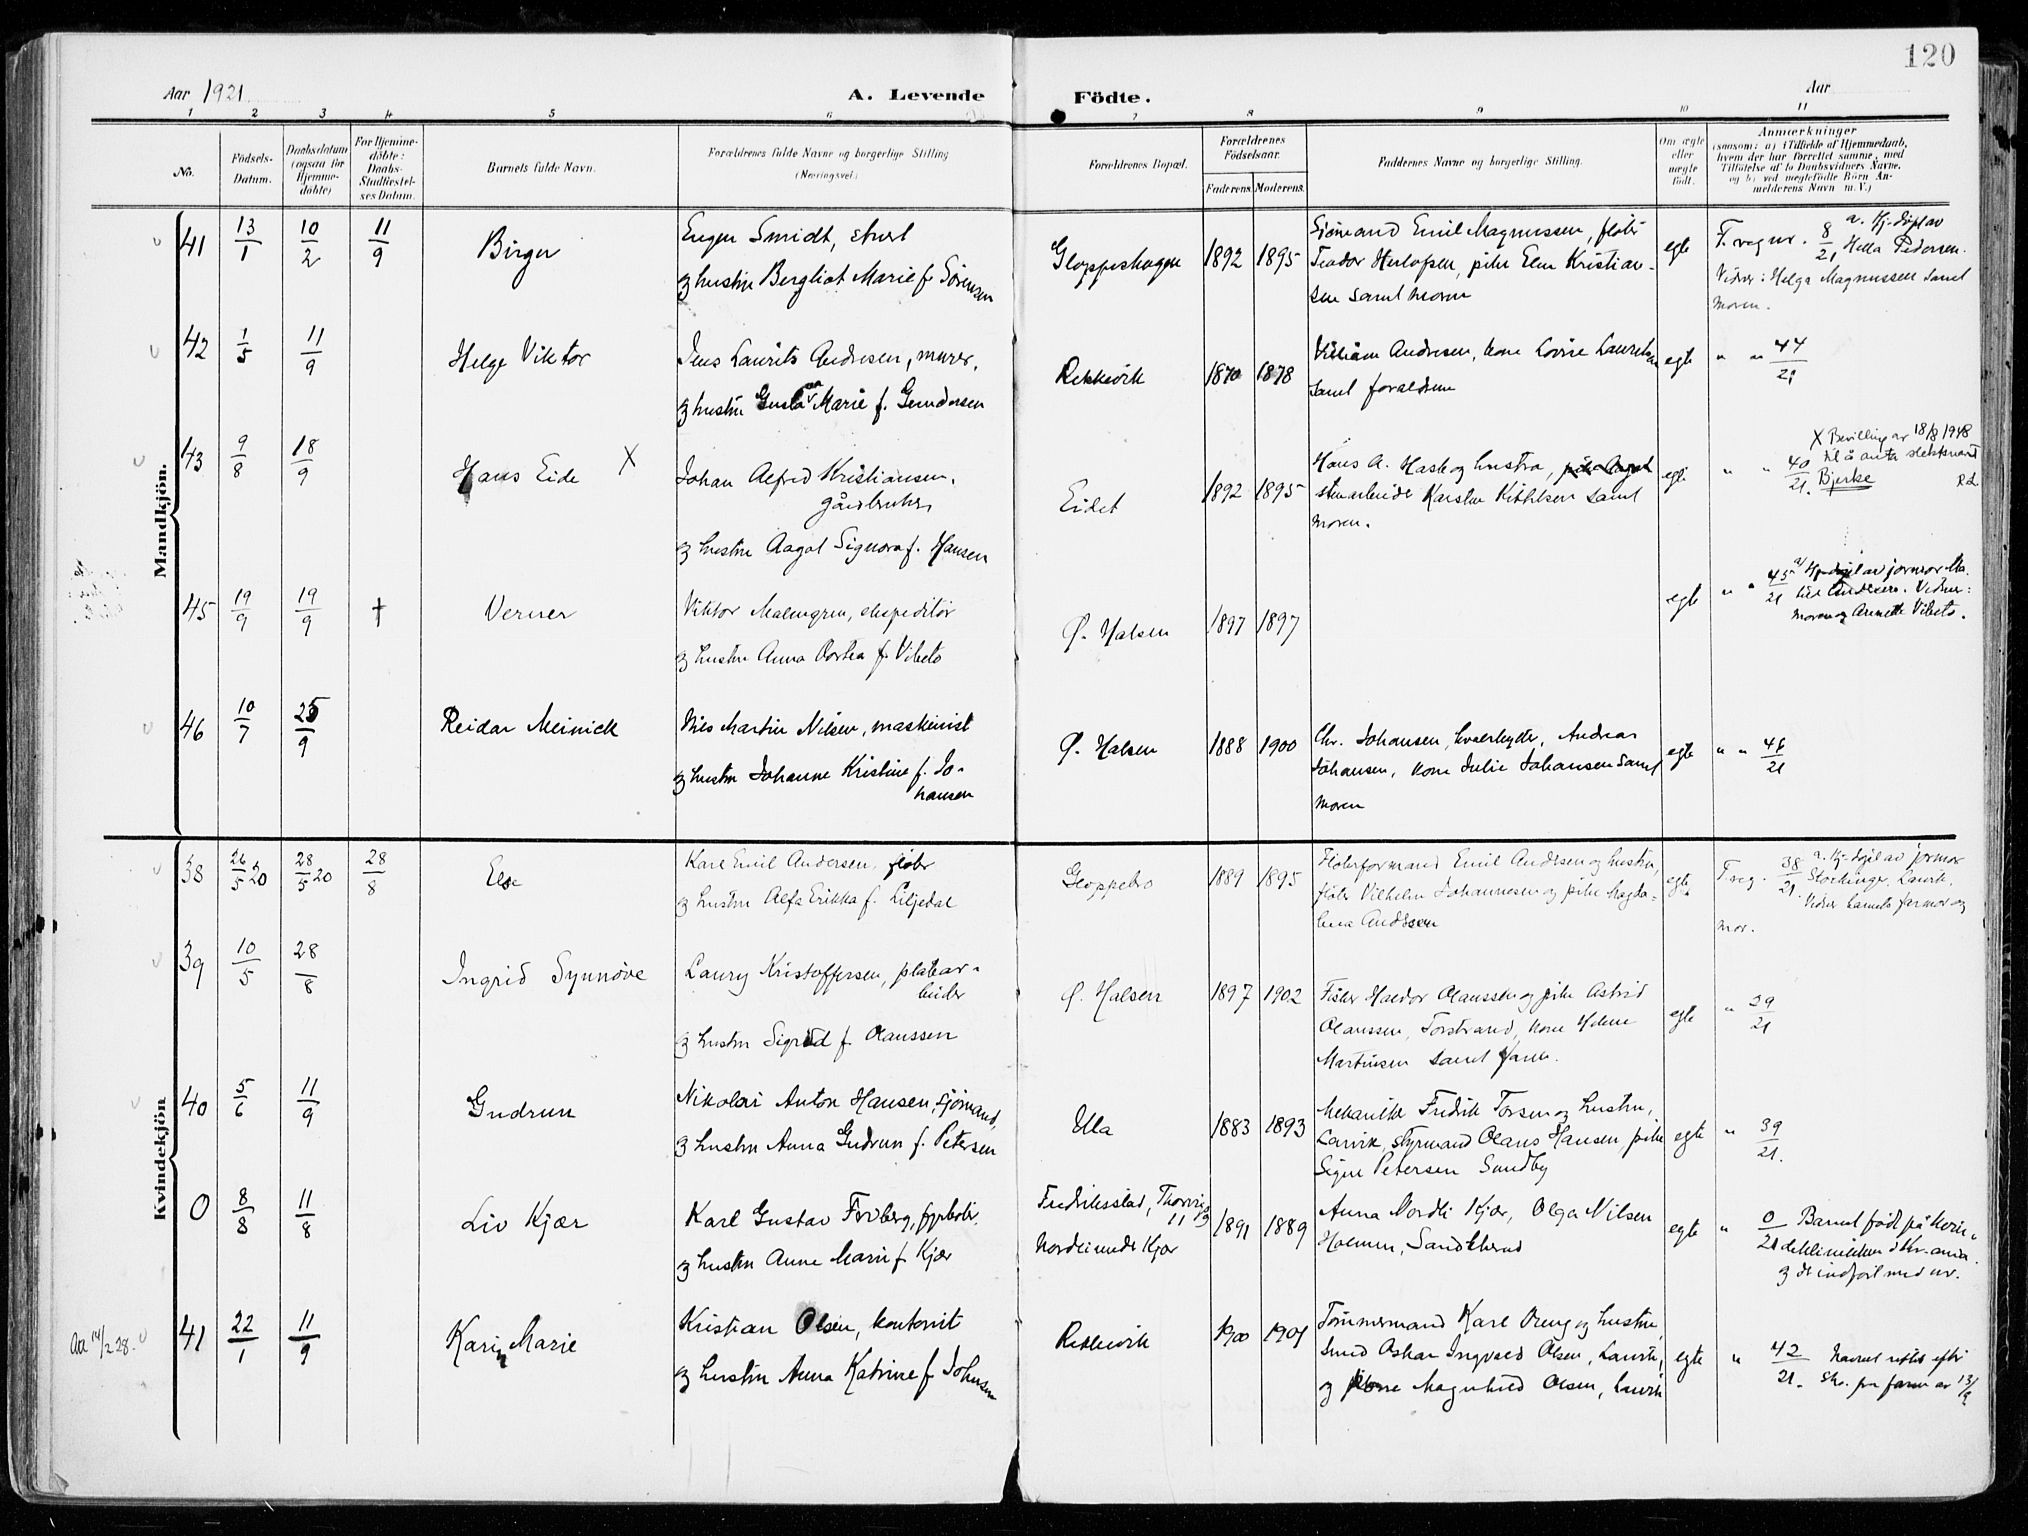 120
Aar 1921
A. Levende Födte.
Aar
1 2 3 4 5 6 7 8 9 10 11
No.
Födsels-Datum.
Daabsdatum (ogsaa for Hjemmedöbte)
For Hjemmedöbte: Daabs-Stadfæstelses Datum.
Barnets fulde Navn.
Forældrenes fulde Navne og borgerlige Stilling
(Næringsvei)
Forældrenes Bopæl.
Forældrenes Födselsaar.
Faderens. Moderens.
Faddernes Navne og borgerlige Stilling.
Om ægte eller uægte födt.
Anmærkninger
(saasom: a) i Tilfælde af Hjemmedaab, hvem der har forrettet samme, med Tilföielse af to Daabsvidners Navne, og b) ved uægtefödte Börn Anmelderens Navn m. V.)
Mandkjön.
41 13/1 10/2 11/9 Birger
Eugen Smidt,
og hustru Bergliot Marie f. Sörensen
Gloppeshagen 1892 1895
Sjömand Emil Magnussen, fløter
Teodor Herlofsen, pike Elen Kristian-
sen samt moren
egte
T. reg nr. 8/21 a. Hj. døpt av
Hella Pedersen.
Vidner: Helga Magnussen samt
moren.
42 1/5 11/9 Helge Viktor
Jens Laurits Andresen, murer,
og hustru Gustava Marie f. Gundersen
Rekkevik 1870 1878
William Andresen, kone Lovise Lauretsen
samt forældrene
egte " " 44/21
43 9/8 18/9 Hans Eide X
Johan Alfred Kristiansen,
gårdbruker,
og hustru Aagot Signora f. Hansen
Eidet 1892 1895
Hans A. Hask og hustru, pike Aagot
stenarbeider Karsten Kittilsen samt
moren.
" " 40/21.
X Bevilling av 18/8 1948
til å anta slektsnavnet
Bjerke
45 19/9 19/9 † Verner
Viktor Malmgren, ekspeditör
og hustru Anna Dortea f. Vibeto
Ø. Halsen 1897 1897
egte " " 45/21 a/ Hj. døpt av jormor Ma-
Andersen. Vidner:
moren og Annette Vibeto.
46 10/7 25/9 Reidar Meinick
Nils Martin Nilsen, maskinist
og hustru Johanne Kristine f. Jo-
hansen
Ø. Halsen 1888 1900
Chr. Johansen, Andreas
Johansen, kone Julie Johansen samt
moren
egte " " 46/21
Kvindekjön
38 26/5 20 28/5 20 28/8 Else
Karl Emil Andersen, fløter
og hustru Alfa Erikka f. Liljedal
Gloppebo 1889 1895
Fløterformand Emil Andersen og hustru,
fløter Vilhelm Johannesen og pike Magda-
lena Andersen
egte
T reg. 38/21. a. Hj. døpt av jormor
Larvik.
Vidner barnets farmor og
mor.
39 10/5 28/8 Ingrid Synnöve
Laury Kristoffersen, platear-
beider
og hustru Sigrid f. Olaussen
Ø. Halsen 1897 1902
Fisker Haldor Olaussen og pike Astrid
Olaussen, Torstrand, kone Helene
Martinsen samt faren.
egte " 39/21
40 5/6 11/9 Gudrun
Nikolai Anton Hansen, sjömand,
og hustru Anna Gudrun f. Petersen
Ula 1883 1893
Mekaniker Fredrik Torsen og hustru,
Larvik, styrmand Olaus Hansen, pike
Signe Petersen Sundby
egte " 39/21.
0 8/8 11/8 Liv Kjær
Karl Gustav Forberg, fyrbøter
og hustru Anne Marie f. Kjær
Fredriksstad,
Nordli nedre Kjær
1891 1889
Anna Nordli Kjær, Olga Nilsen
Holmen, Sandeherred
egte " 0/21 Barnet født på kvin-
deklinikken i Kr.ania
og der indført med nr.
Aa 14/2 28.
41 22/1 11/9 Karin Marie
Kristian Olsen, kontorist
og hustru Anna Katrine f. Johnsen
Rekkevik 1900 1901
Tömmermand Karl Oeng og hustru,
Smed Oskar Ingvald Olsen, Larvik,
og kone Magnhild Olsen, Larvik
egte " 42/21. Navnet rettet efter
skr. fra faren av 13/9